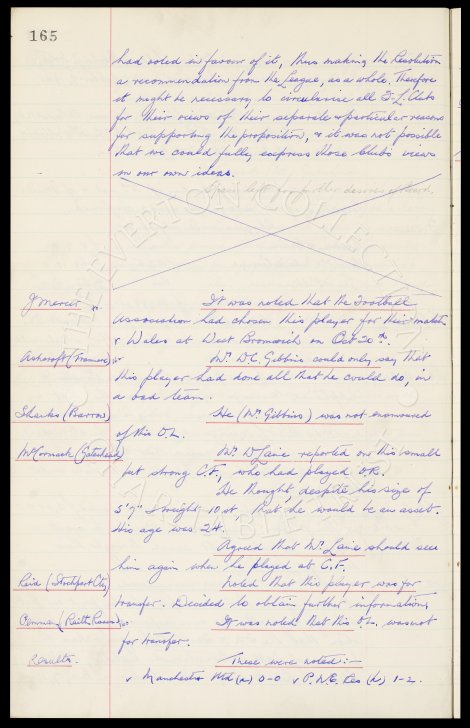 165
had voted in favour of it, thus making the Resolution
a recommendation from the League, as a whole. Therefore
it might be necessary to circularise all F.L. Clubs
for their views of their separate & particular reasons
for supporting the proposition, & it was not possible
that we could fully express those Clubs views
in our own ideas.
Space left for further desires of Board.
THE EVERTON COLLECTION
CHARITABLE TRUST
J. Mercer. It was noted that the Football
Association had chosen this player for their match
v Wales at West Bromwich on Oct 20th.
Ashcroft (Tranmere) Mr. W.C. Gibbins could only say that
this player had done all that he could do, in
a bad team.
Sharks (Barrow) He (Mr. Gibbins) was not enamoured
of this O.L.
McCormack (Gateshead) Mr. W Laine reported on this small
but strong C.F., who had played O.R.
He thought, despite his size of
5'7" & weight 10 st that he would be an asset.
His age was 24.
Agreed that Mr. Laine should see
him again when he played at C.F.
Reid (Stockport Cty) Noted that this player was for
transfer. Decided to obtain further information.
(Raith Rovers) It was noted that this O.L. was not
for transfer.
Results. These were noted:-
v Manchester Utd (a) 0-0 v P.N.E. Res (h) 1-2.